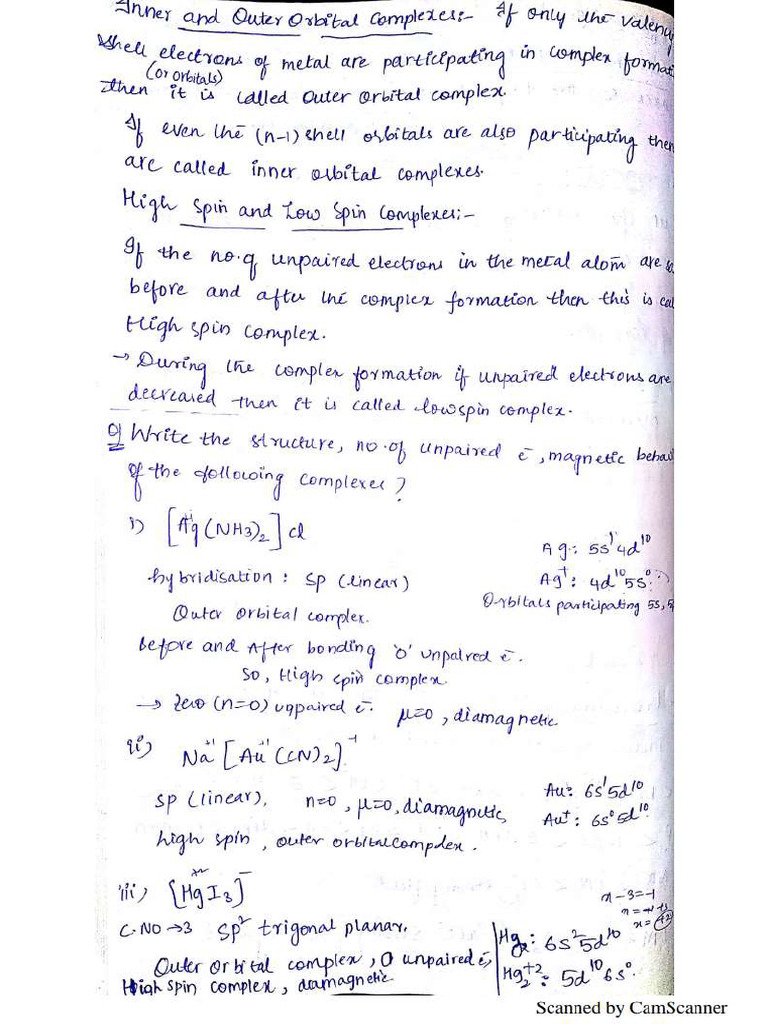 Inner and Outer Orbital Complexes:- If only the valency
shell electrons of metal are participating in complex format
(or orbitals)
then it is called Outer Orbital complex.
If even the (n-1) shell orbitals are also participating then
are called inner orbital complexes.
High Spin and Low Spin Complexes:-
If the no.of unpaired electrons in the metal atom are sa
before and after the complex formation then this is cal
High spin complex.
→ During the complex formation if unpaired electrons are
decreased then it is called low spin complex.
Q) Write the structure, no.of unpaired e⁻, magnetic behav
of the following complexes?
i) [Ag⁺¹(NH3)₂]Cl
Ag: 5s¹4d¹⁰
hybridisation: sp (linear)
Ag⁺: 4d¹⁰5s⁰
Outer orbital complex.
Orbitals participating 5s, 5p
Before and After bonding '0' unpaired e⁻.
So, High spin complex.
→ Zero (n=0) unpaired e⁻. μ=0, diamagnetic
ii) Na⁺¹[Au⁺¹(CN)₂]⁻¹
Au: 6s¹5d¹⁰
sp (linear), n=0, μ=0, diamagnetic,
Au⁺: 6s⁰5d¹⁰
high spin, outer orbital complex.
iii) [Hg⁺²I3]⁻
x-3=-1
C.NO→3 sp² trigonal planar.
x=-1+3
x=+2
Hg: 6s²5d¹⁰
Outer orbital complex, 0 unpaired e⁻,
Hg⁺²: 5d¹⁰6s⁰
High spin complex, diamagnetic
Scanned by CamScanner